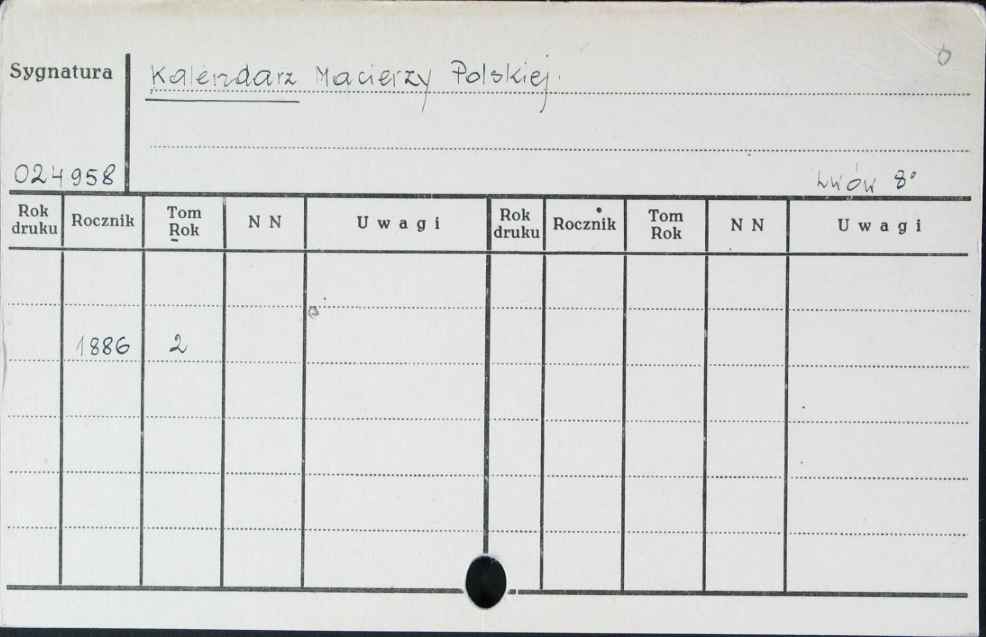 Sygnatura Kalendarz Macierzy Polskiej.
024958 Lwów 8°
Rok druku Rocznik Tom Rok N N Uwagi Rok druku Rocznik Tom Rok N N Uwagi
1886 2